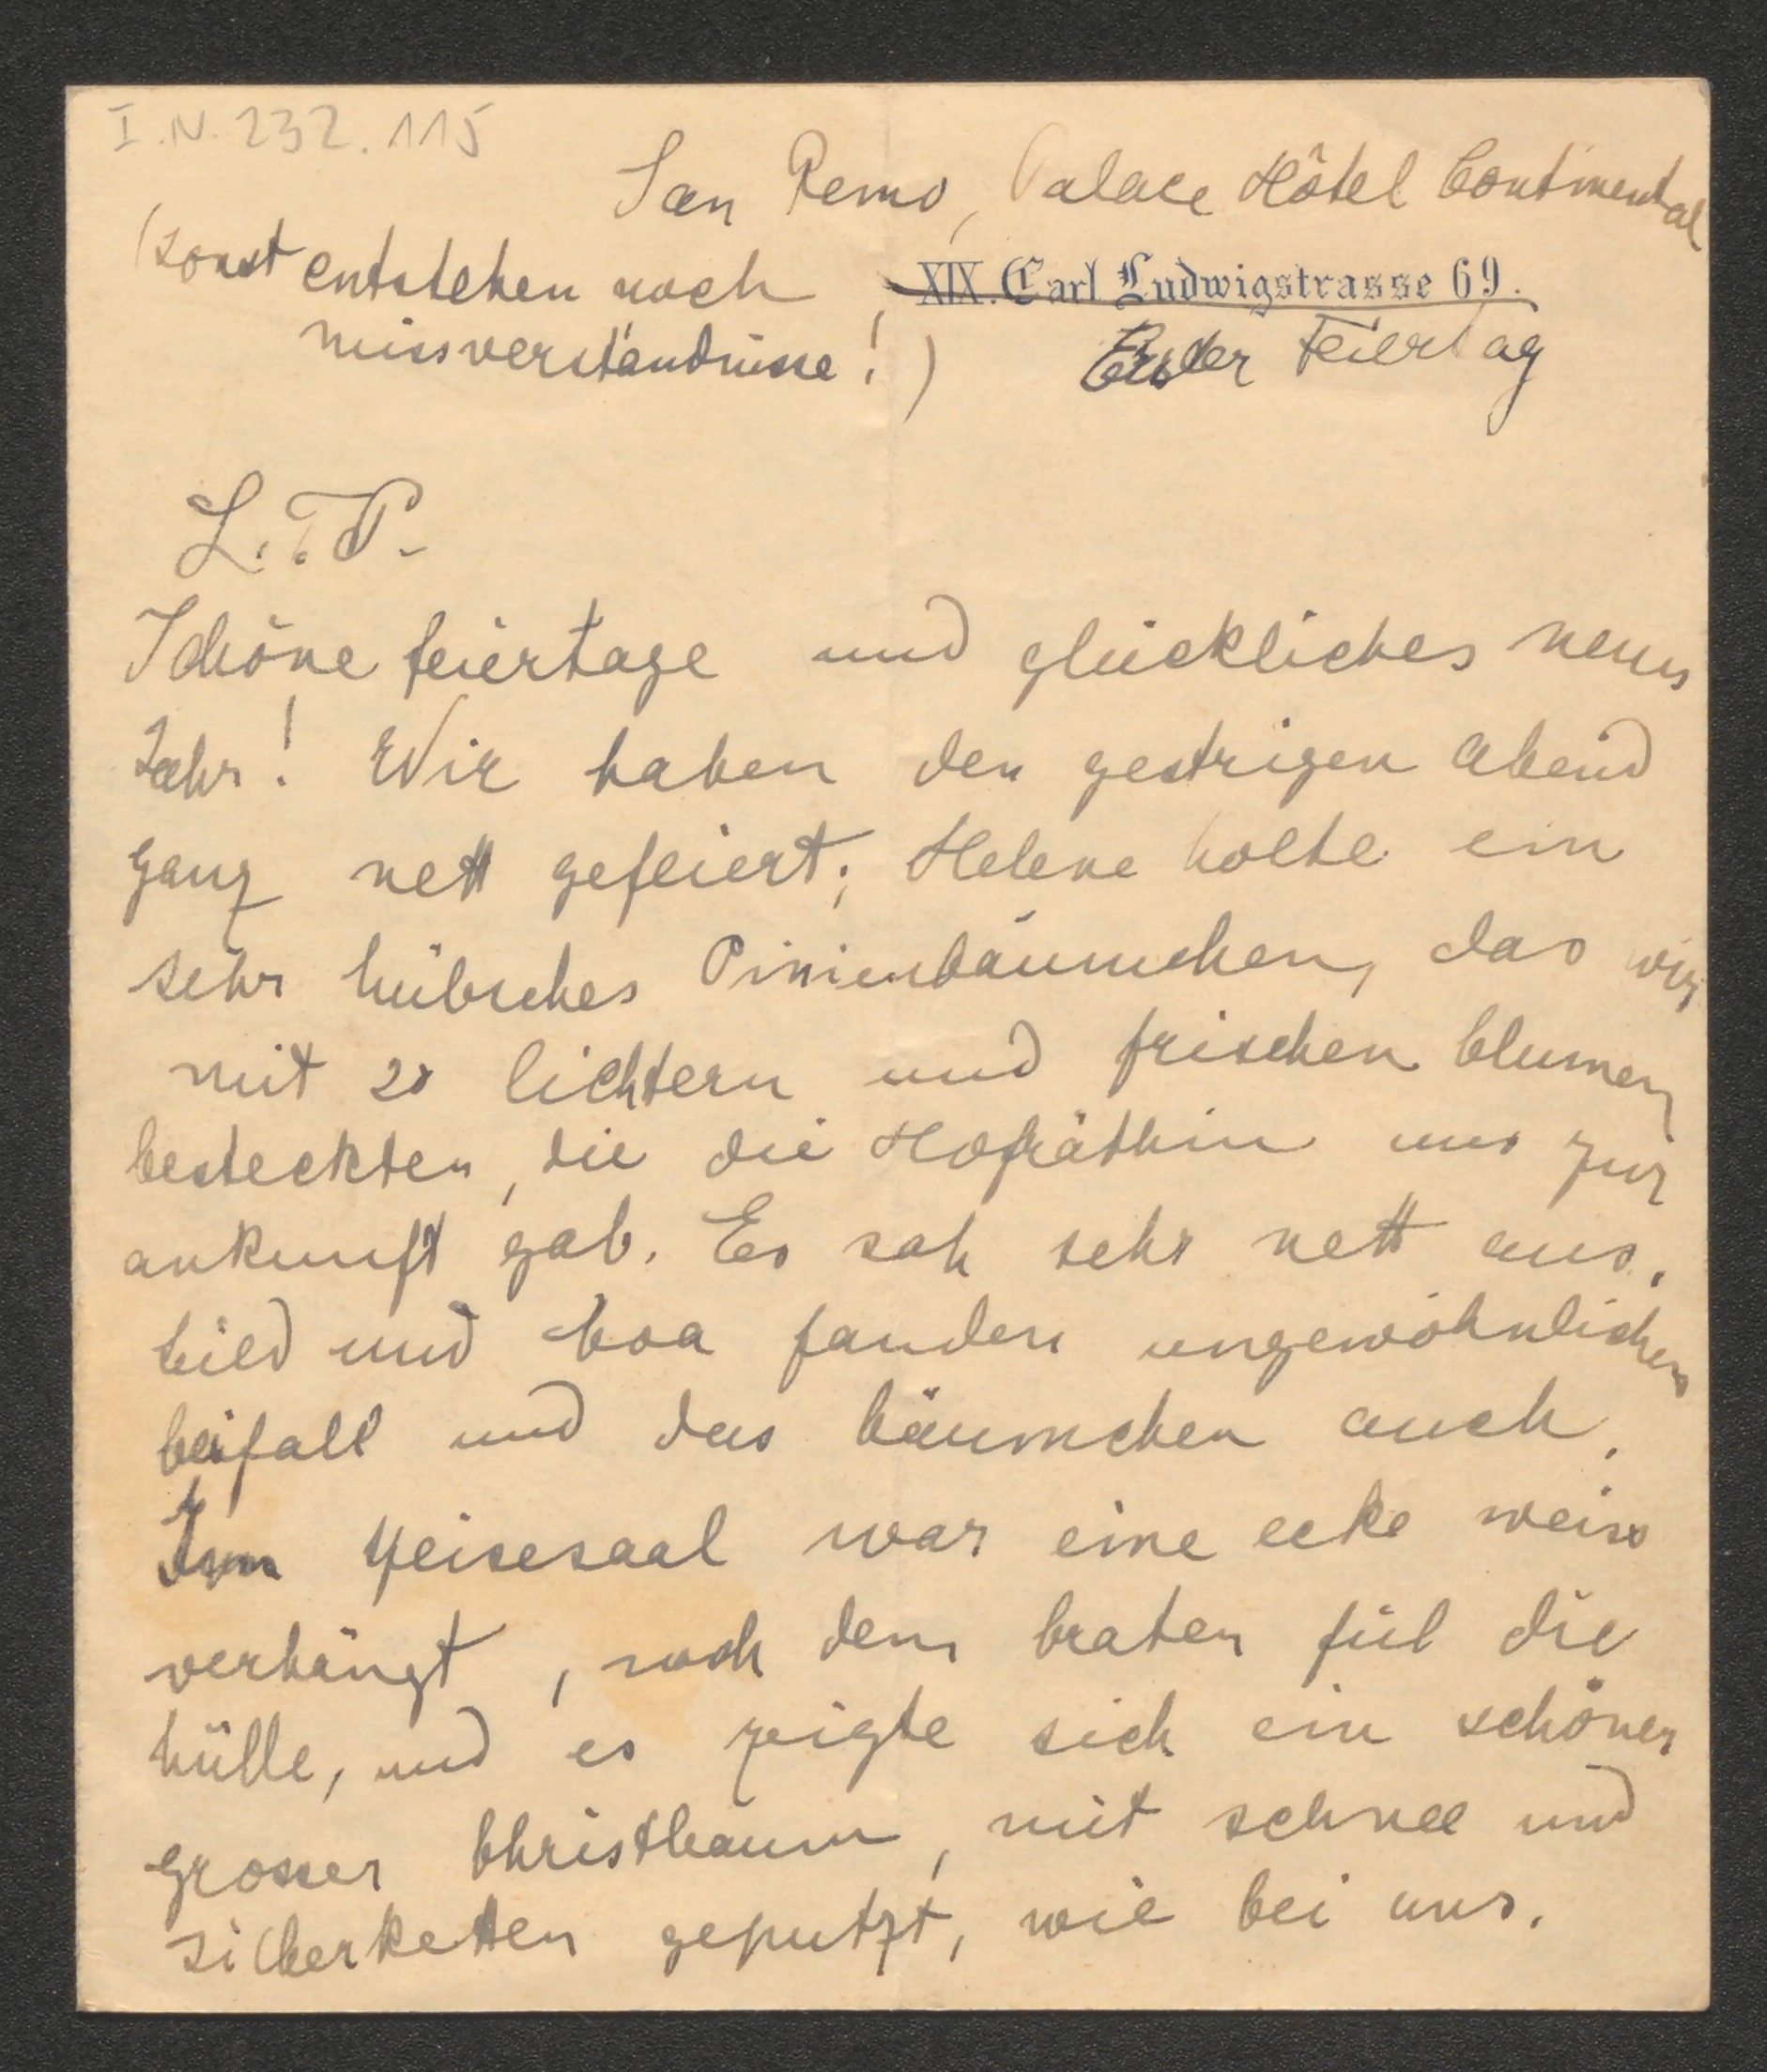 I.N. 232.115
San Remo, Palace Hôtel Continental
(sonst entstehen noch
missverständnisse!)
XIX. Carl Ludwigstrasse 69.
Erster Feiertag
L. T. P.
Schöne feiertage und glückliches neues
Jahr! Wir haben den gestrigen abend
ganz nett gefeiert; Helene holte ein
sehr hübsches Pinienbäumchen, das wir
mit 20 lichtern und frischen blumen
besteckten, die die Hofräthin uns zur
ankunft gab. Es sah sehr nett aus.
bild und boa fanden ungewöhnlichen
beifall und das bäumchen auch.
Im speisesaal war eine ecke weiss
verhängt, nach dem braten fiel die
hülle, und es zeigte sich ein schöner
grosser Christbaum, mit schnee und
silberketten geputzt, wie bei uns.